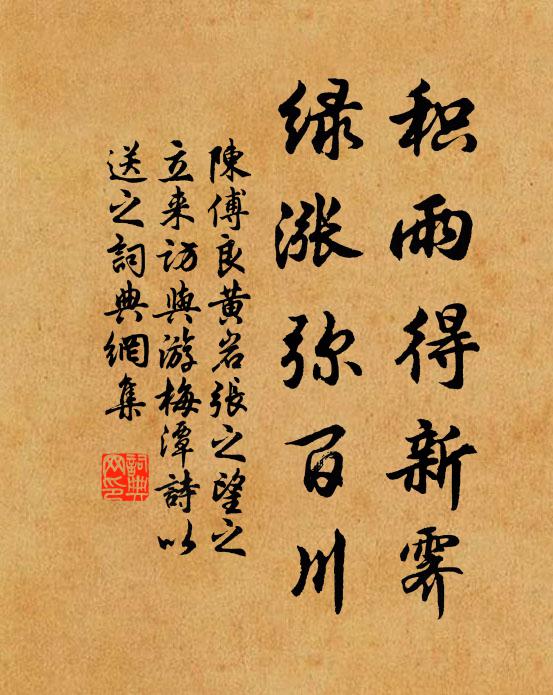 积雨得新霁
绿涨弥百川
陳傅良黄岩張之望之
立来訪與游梅潭詩以
送之詞典網集
詞典网印